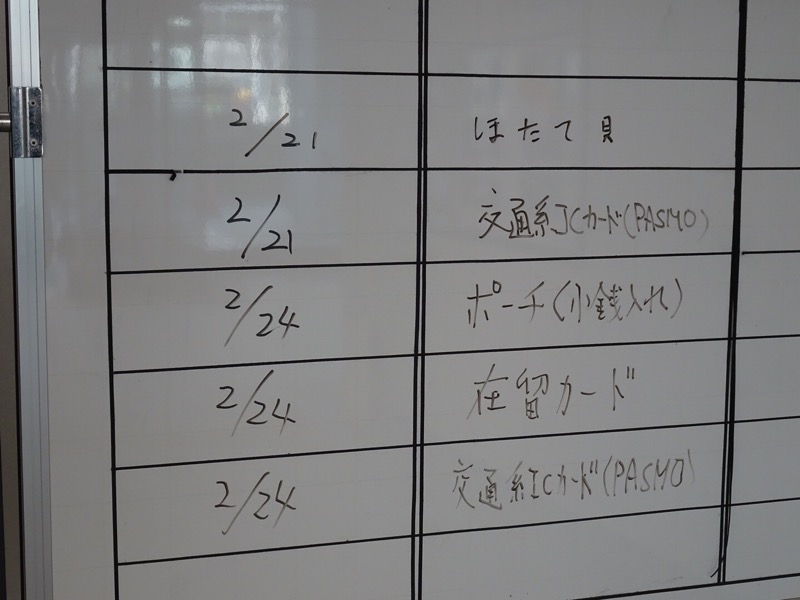 2/21 ほたて貝
2/21 交通系ICカード(PASMO)
2/24 ポーチ(小銭入れ)
2/24 在留カード
2/24 交通系ICカード(PASMO)